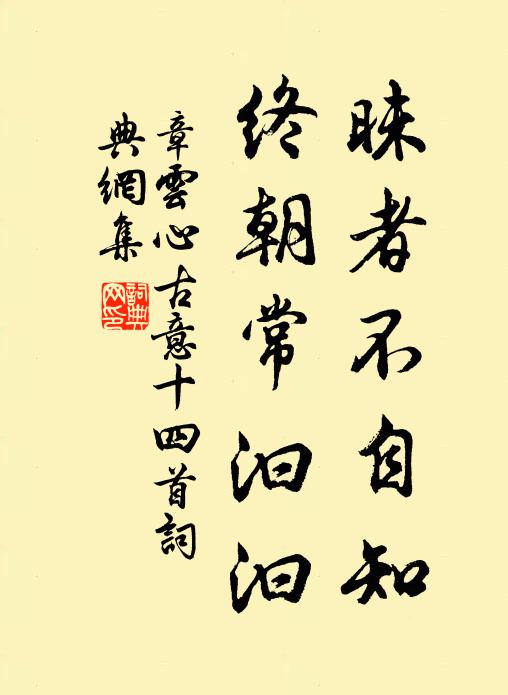 昧者不自知
終朝常汩汩
章雲心古意十四首詞
典網集
詞典
网印